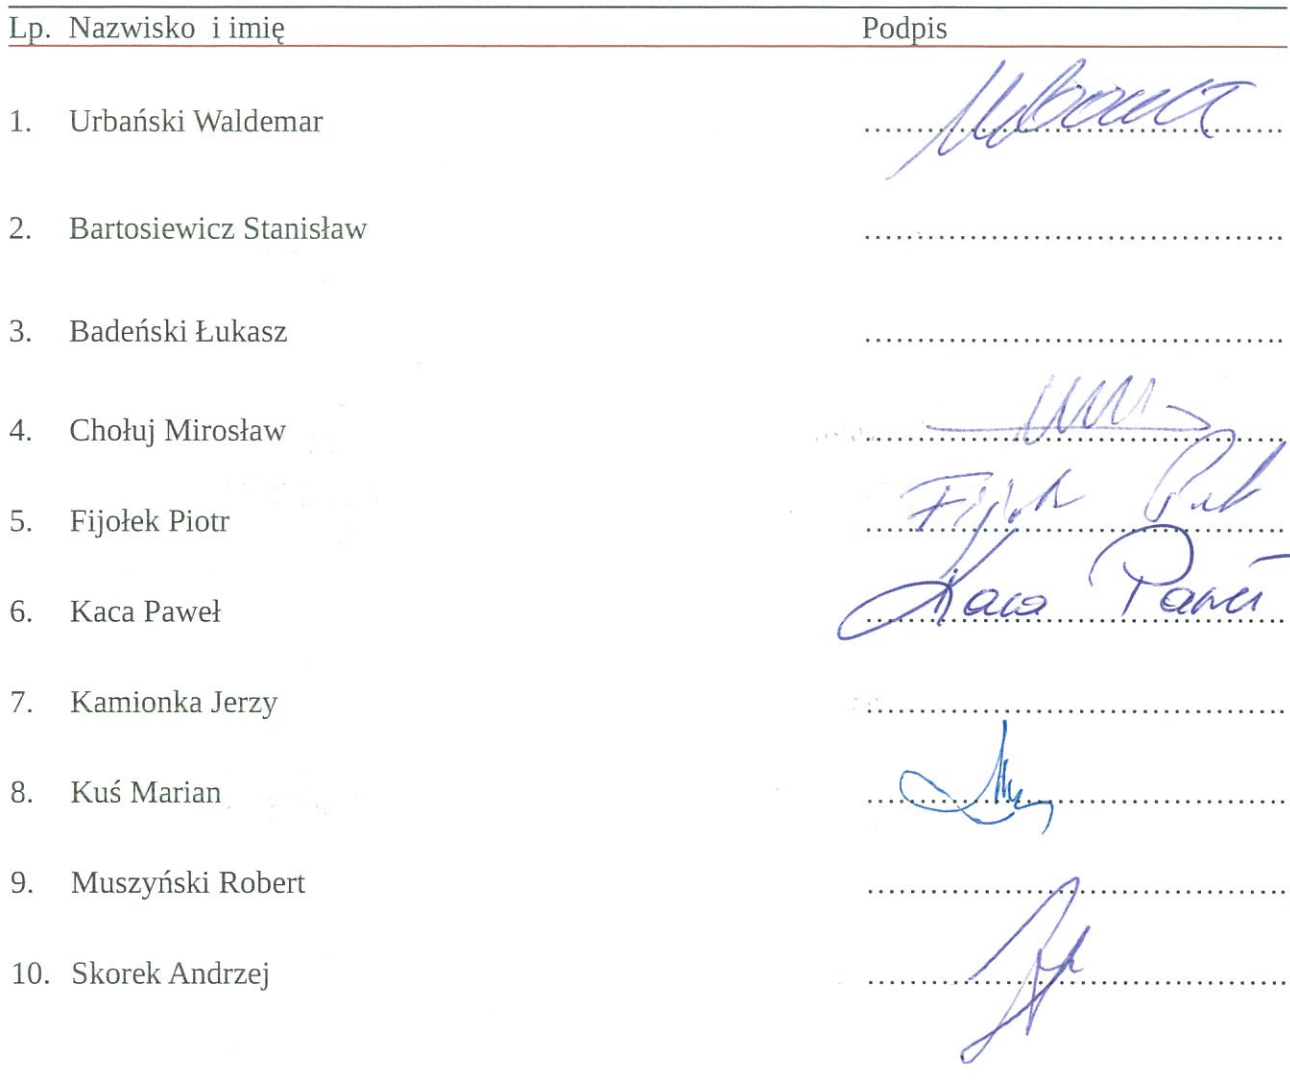 Lp. Nazwisko i imię Podpis
1. Urbański Waldemar ........................................
2. Bartosiewicz Stanisław ........................................
3. Badeński Łukasz ........................................
4. Chołuj Mirosław ........................................
5. Fijołek Piotr ........................................
6. Kaca Paweł ........................................ Kaca Paweł
7. Kamionka Jerzy ........................................
8. Kuś Marian ........................................
9. Muszyński Robert ........................................
10. Skorek Andrzej ........................................